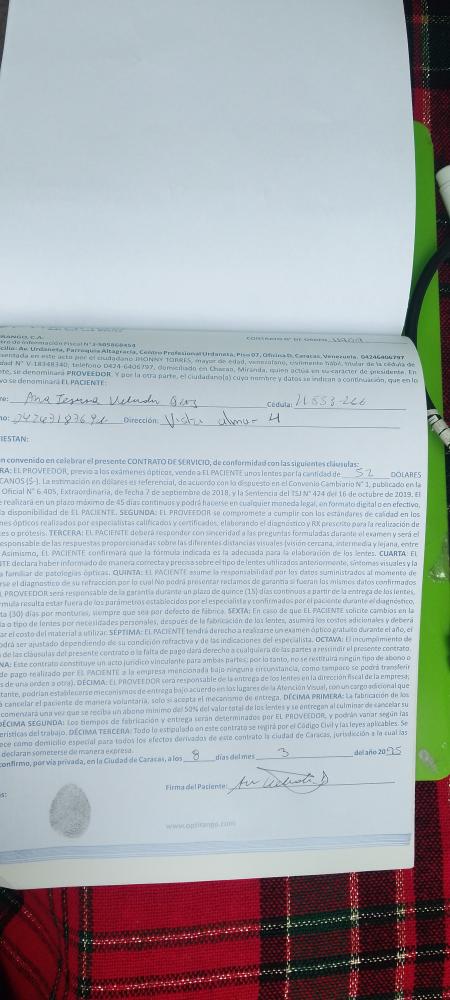 RANGO, C.A. CONTRATO N° DE ORDEN
tro de Información Fiscal N° J-505868454
cilio: Av. Urdaneta, Parroquia Altagracia, Centro Profesional Urdaneta, Piso 07, Oficina D, Caracas, Venezuela. 04246406797
sentada en este acto por el ciudadano JHONNY TORRES, mayor de edad, venezolano, civilmente hábil, titular de la cédula de
dad N° V-18348340, teléfono 0424-6406797, domiciliado en Chacao, Miranda, quien actúa en su carácter de presidente. En
te, se denominará PROVEEDOR. Y por la otra parte, el ciudadano(a) cuyo nombre y datos se indican a continuación, que en lo
vo se denominará EL PACIENTE:
re: Ana Teresa Cédula: 11 553-266
no: Dirección: Vista 4
IESTAN:
n convenido en celebrar el presente CONTRATO DE SERVICIO, de conformidad con las siguientes cláusulas:
RA: EL PROVEEDOR, previo a los exámenes ópticos, vende a EL PACIENTE unos lentes por la cantidad de 52 DOLARES
CANOS ($-). La estimación en dólares es referencial, de acuerdo con lo dispuesto en el Convenio Cambiario N° 1, publicado en la
Oficial N° 6.405, Extraordinaria, de fecha 7 de septiembre de 2018, y la Sentencia del TSJ N° 424 del 16 de octubre de 2019. El
e realizará en un plazo máximo de 45 días continuos y podrá hacerse en cualquier moneda legal, en formato digital o en efectivo,
la disponibilidad de EL PACIENTE. SEGUNDA: EL PROVEEDOR se compromete a cumplir con los estándares de calidad en los
nes ópticos realizados por especialistas calificados y certificados, elaborando el diagnóstico y RX prescrito para la realización de
es o prótesis. TERCERA: EL PACIENTE deberá responder con sinceridad a las preguntas formuladas durante el examen y será el
esponsable de las respuestas proporcionadas sobre las diferentes distancias visuales (visión cercana, intermedia y lejana, entre
Asimismo, EL PACIENTE confirmará que la fórmula indicada es la adecuada para la elaboración de los lentes. CUARTA: EL
TE declara haber informado de manera correcta y precisa sobre el tipo de lentes utilizados anteriormente, síntomas visuales y la
a familiar de patologías ópticas. QUINTA: EL PACIENTE asume la responsabilidad por los datos suministrados al momento de
rse el diagnóstico de su refracción por lo cual No podrá presentar reclamos de garantía si fueran los mismos datos confirmados
L PROVEEDOR será responsable de la garantía durante un plazo de quince (15) días continuos a partir de la entrega de los lentes,
rmula resulta estar fuera de los parámetros establecidos por el especialista y confirmados por el paciente durante el diagnóstico,
ta (30) días por monturas, siempre que sea por defecto de fábrica. SEXTA: En caso de que EL PACIENTE solicite cambios en la
la o tipo de lentes por necesidades personales, después de la fabricación de los lentes, asumirá los costos adicionales y deberá
ar el costo del material a utilizar. SÉPTIMA: EL PACIENTE tendrá derecho a realizarse un examen óptico gratuito durante el año, el
odrá ser ajustado dependiendo de su condición refractiva y de las indicaciones del especialista. OCTAVA: El incumplimiento de
de las cláusulas del presente contrato o la falta de pago dará derecho a cualquiera de las partes a rescindir el presente contrato.
NA: Este contrato constituye un acto jurídico vinculante para ambas partes; por lo tanto, no se restituirá ningún tipo de abono o
de pago realizado por EL PACIENTE a la empresa mencionada bajo ninguna circunstancia, como tampoco se podrá transferir
s de una orden a otra). DÉCIMA: EL PROVEEDOR será responsable de la entrega de los lentes en la dirección fiscal de la empresa;
tante, podrían establecerse mecanismos de entrega bajo acuerdo en los lugares de la Atención Visual, con un cargo adicional que
á cancelar el paciente de manera voluntaria, solo si acepta el mecanismo de entrega. DÉCIMA PRIMERA: La fabricación de los
comenzará una vez que se reciba un abono mínimo del 50% del valor total de los lentes y se entregan al culminar de cancelar su
DÉCIMA SEGUNDA: Los tiempos de fabricación y entrega serán determinados por EL PROVEEDOR, y podrán variar según las
erísticas del trabajo. DÉCIMA TERCERA: Todo lo estipulado en este contrato se regirá por el Código Civil y las leyes aplicables. Se
ece como domicilio especial para todos los efectos derivados de este contrato la ciudad de Caracas, jurisdicción a la cual las
declaran someterse de manera expresa.
confirmo, por vía privada, en la Ciudad de Caracas, a los 8 días del mes 3 del año 2025
Firma del Paciente:
s:
www.optirango.com